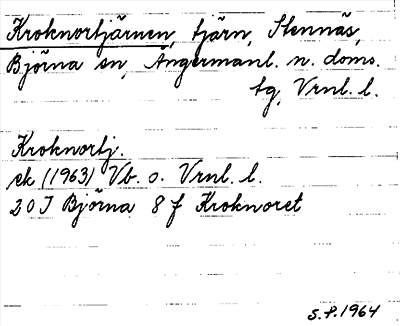 Kroknortjärnen, tjärn, Stennäs,
Björna sn, Ångermanl. n. doms.
tg, Vrnl. l.
Kroknortj.
ek (1963) Vb. o. Vrnl. l.
20 I Björna 8 f Kroknoret
S.P. 1964